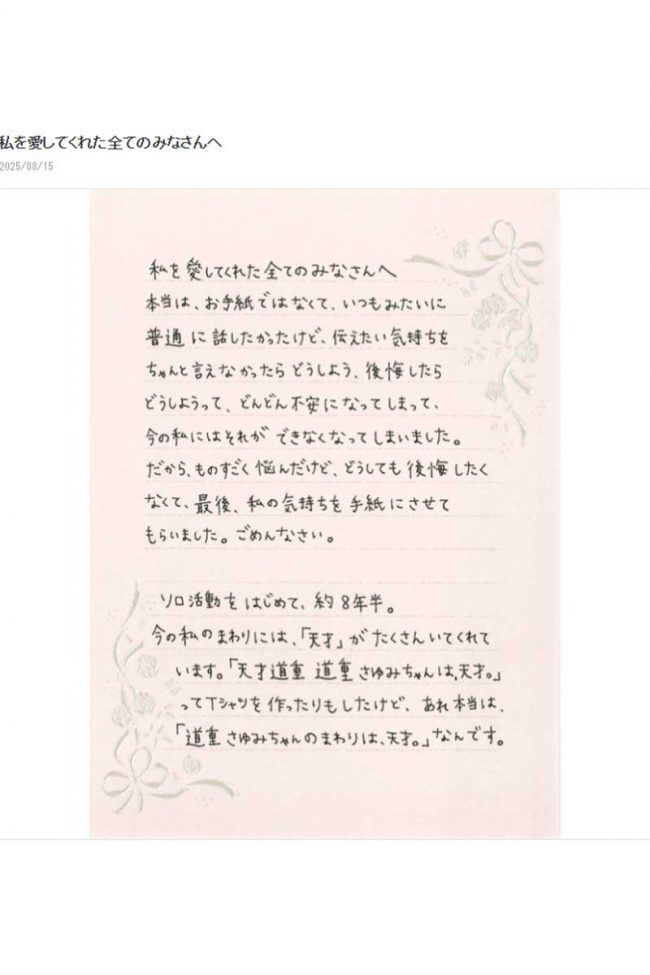 私を愛してくれた全てのみなさんへ
2025/08/15
私を愛してくれた全てのみなさんへ
本当は、お手紙ではなくて、いつもみたいに
普通に話したかったけど、伝えたい気持ちを
ちゃんと言えなかったらどうしよう、後悔したら
どうしようって、どんどん不安になってしまって、
今の私にはそれができなくなってしまいました。
だから、ものすごく悩んだけど、どうしても後悔したく
なくて、最後、私の気持ちを手紙にさせて
もらいました。ごめんなさい。
ソロ活動をはじめて、約8年半。
今の私のまわりには、「天才」がたくさんいてくれて
います。「天才道重 道重さゆみちゃんは、天才。」
ってTシャツを作ったりもしたけど、あれ本当は、
「道重さゆみちゃんのまわりは、天才。」なんです。